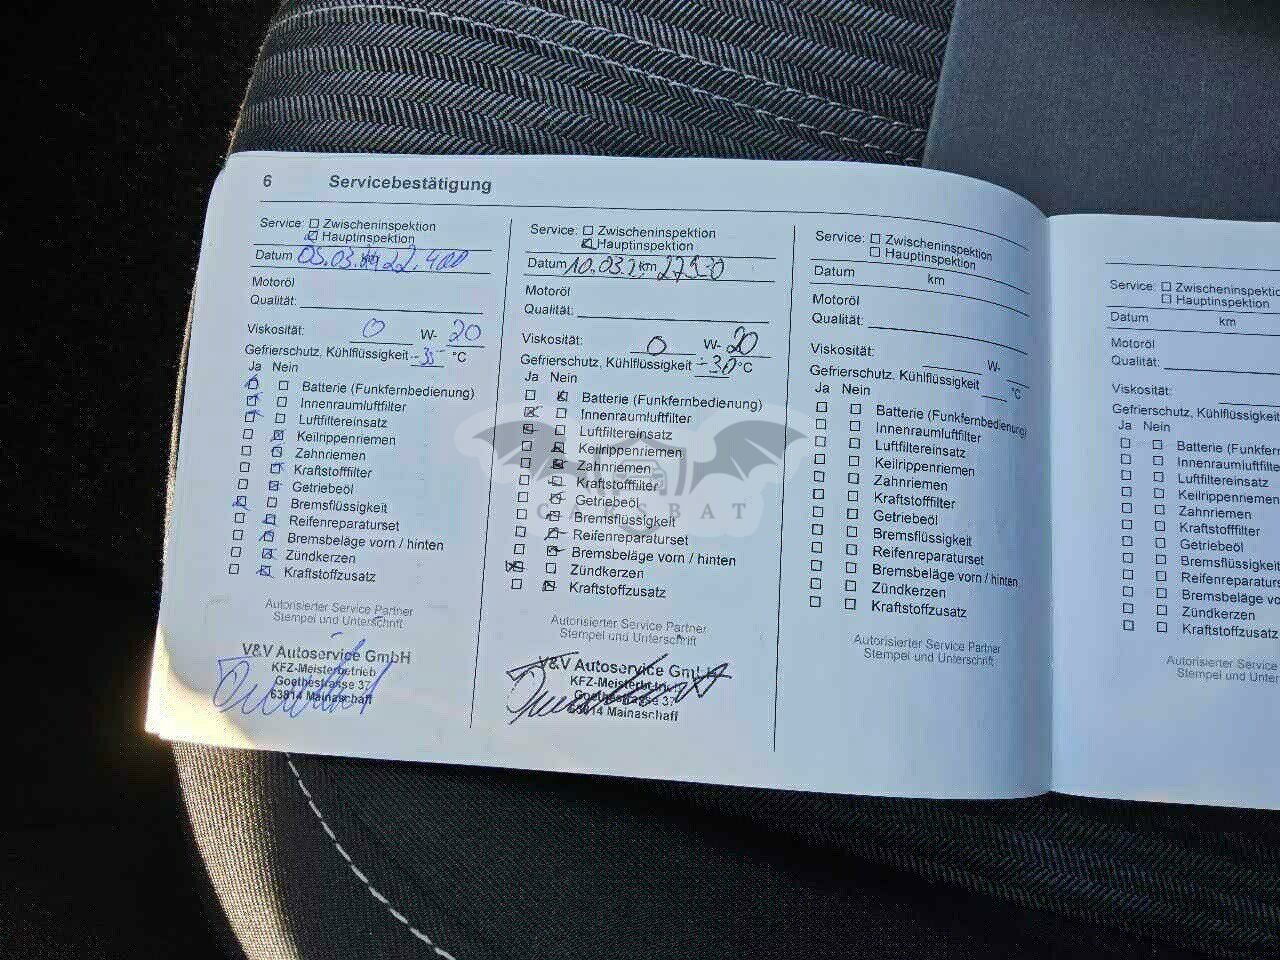 6 Servicebestätigung
Service: Zwischeninspektion
Hauptinspektion
Datum 05.03. km 22.400
Motoröl
Qualität:
Viskosität: 0 W- 20
Gefrierschutz, Kühlflüssigkeit -35 °C
Ja Nein
Batterie (Funkfernbedienung)
Innenraumluftfilter
Luftfiltereinsatz
Keilrippenriemen
Zahnriemen
Kraftstofffilter
Getriebeöl
Bremsflüssigkeit
Reifenreparaturset
Bremsbeläge vorn / hinten
Zündkerzen
Kraftstoffzusatz
Autorisierter Service Partner
Stempel und Unterschrift
V&V Autoservice GmbH
KFZ-Meisterbetrieb
Goethestrasse 37
63814 Mainaschaff
Service: Zwischeninspektion
Hauptinspektion
Datum 10.03. km
Motoröl
Qualität:
Viskosität: 0 W- 20
Gefrierschutz, Kühlflüssigkeit -30 °C
Ja Nein
Batterie (Funkfernbedienung)
Innenraumluftfilter
Luftfiltereinsatz
Keilrippenriemen
Zahnriemen
Kraftstofffilter
Getriebeöl
Bremsflüssigkeit
Reifenreparaturset
Bremsbeläge vorn / hinten
Zündkerzen
Kraftstoffzusatz
Autorisierter Service Partner
Stempel und Unterschrift
V&V Autoservice GmbH
KFZ-Meisterbetrieb
Goethestrasse 37
63814 Mainaschaff
CARSBAT
Service: Zwischeninspektion
Hauptinspektion
Datum km
Motoröl
Qualität:
Viskosität: W-
Gefrierschutz, Kühlflüssigkeit °C
Ja Nein
Batterie (Funkfernbedienung)
Innenraumluftfilter
Luftfiltereinsatz
Keilrippenriemen
Zahnriemen
Kraftstofffilter
Getriebeöl
Bremsflüssigkeit
Reifenreparaturset
Bremsbeläge vorn / hinten
Zündkerzen
Kraftstoffzusatz
Autorisierter Service Partner
Stempel und Unterschrift
Service: Zwischeninspektio
Hauptinspektion
Datum km
Motoröl
Qualität:
Viskosität:
Gefrierschutz, Kühlflüssigkeit
Ja Nein
Batterie (Funkfern
Innenraumluftfilte
Luftfiltereinsatz
Keilrippenriemen
Zahnriemen
Kraftstofffilter
Getriebeöl
Bremsflüssigkeit
Reifenreparaturse
Bremsbeläge vo
Zündkerzen
Kraftstoffzusatz
Autorisierter Service
Stempel und Unters